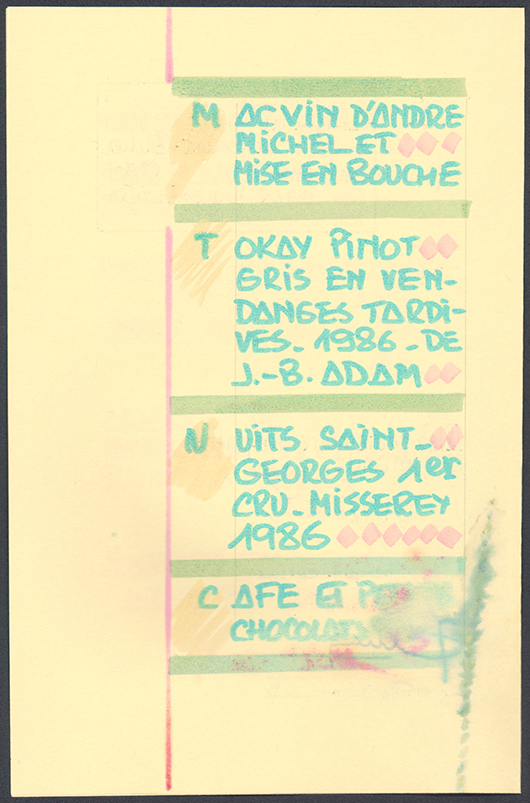 MACVIN D'ANDRE
MICHELET
MISE EN BOUCHE
TOKAY PINOT
GRIS EN VEN-
DANGES TARDI-
VES_ 1986 - DE
J.-B. ADAM
NUITS SAINT_
GEORGES 1er
CRU_ MISSEREY
1986
CAFE ET
CHOCOLATS